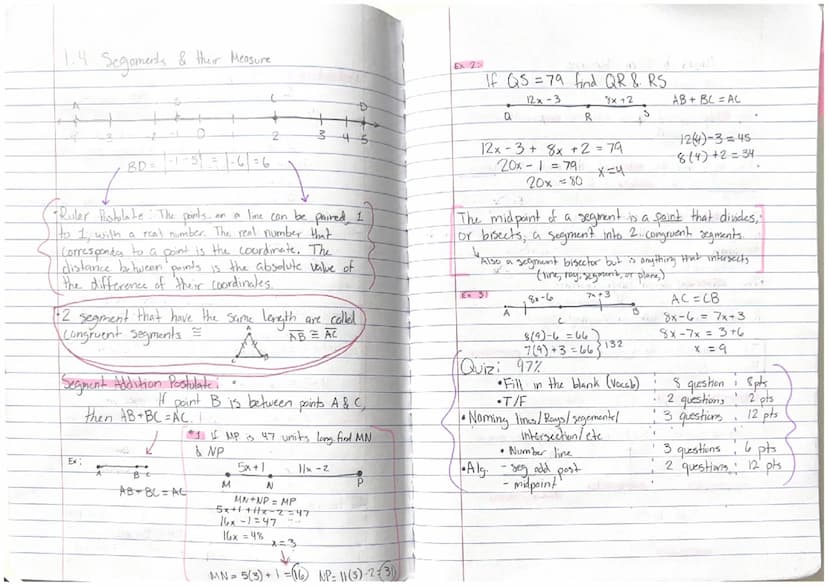 1.4 Segments & their Measure
A B C D
-4 -3 -2 -1 0 2 3 4 5
BD = |-1-5| = |-6| = 6
Ruler Postulate: The points on a line can be paired, 1
to 1, with a real number. The real number that
corresponds to a point is the coordinate. The
distance between points is the absolute value of
the difference of their coordinates.
2 segment that have the same length are called
congruent segments ≅
AB ≅ AC
A
C B
Segment Addition Postulate
If point B is between points A & C,
then AB+BC = AC.
Ex:
A B C
AB + BC = AC
#1 if MP is 47 units long, find MN
& NP
5x+1 11x-2
M N P
MN+NP = MP
5x+1+11x-2=47
16x-1=47
16x=48
x=3
MN = 5(3)+1 = 16 NP = 11(3)-2 = 31
Ex 2:
If QS = 79 find QR & RS
12x-3 8x+2 AB + BC = AC
Q R S
12x-3 + 8x+2 = 79
20x-1 = 79
20x = 80
x=4
12(4)-3=45
8(4)+2=34
The midpoint of a segment is a point that divides,
or bisects, a segment into 2 congruent segments.
Also a segment bisector but is anything that intersects
(line, ray, segment, or plane)
Ex 3:
8x-6 7x+3
A C B
AC = CB
8x-6 = 7x+3
8x-7x = 3+6
x = 9
8(9)-6 = 66
7(9)+3 = 66
132
Quiz: 97%
• Fill in the blank (Vocab) 8 question 8pts
• T/F 2 questions 2 pts
• Naming lines/Rays/segements/ 3 questions 12 pts
intersection/etc
• Number line 3 questions 6 pts
• Alg. - seg add post 2 questions 12 pts
- midpoint